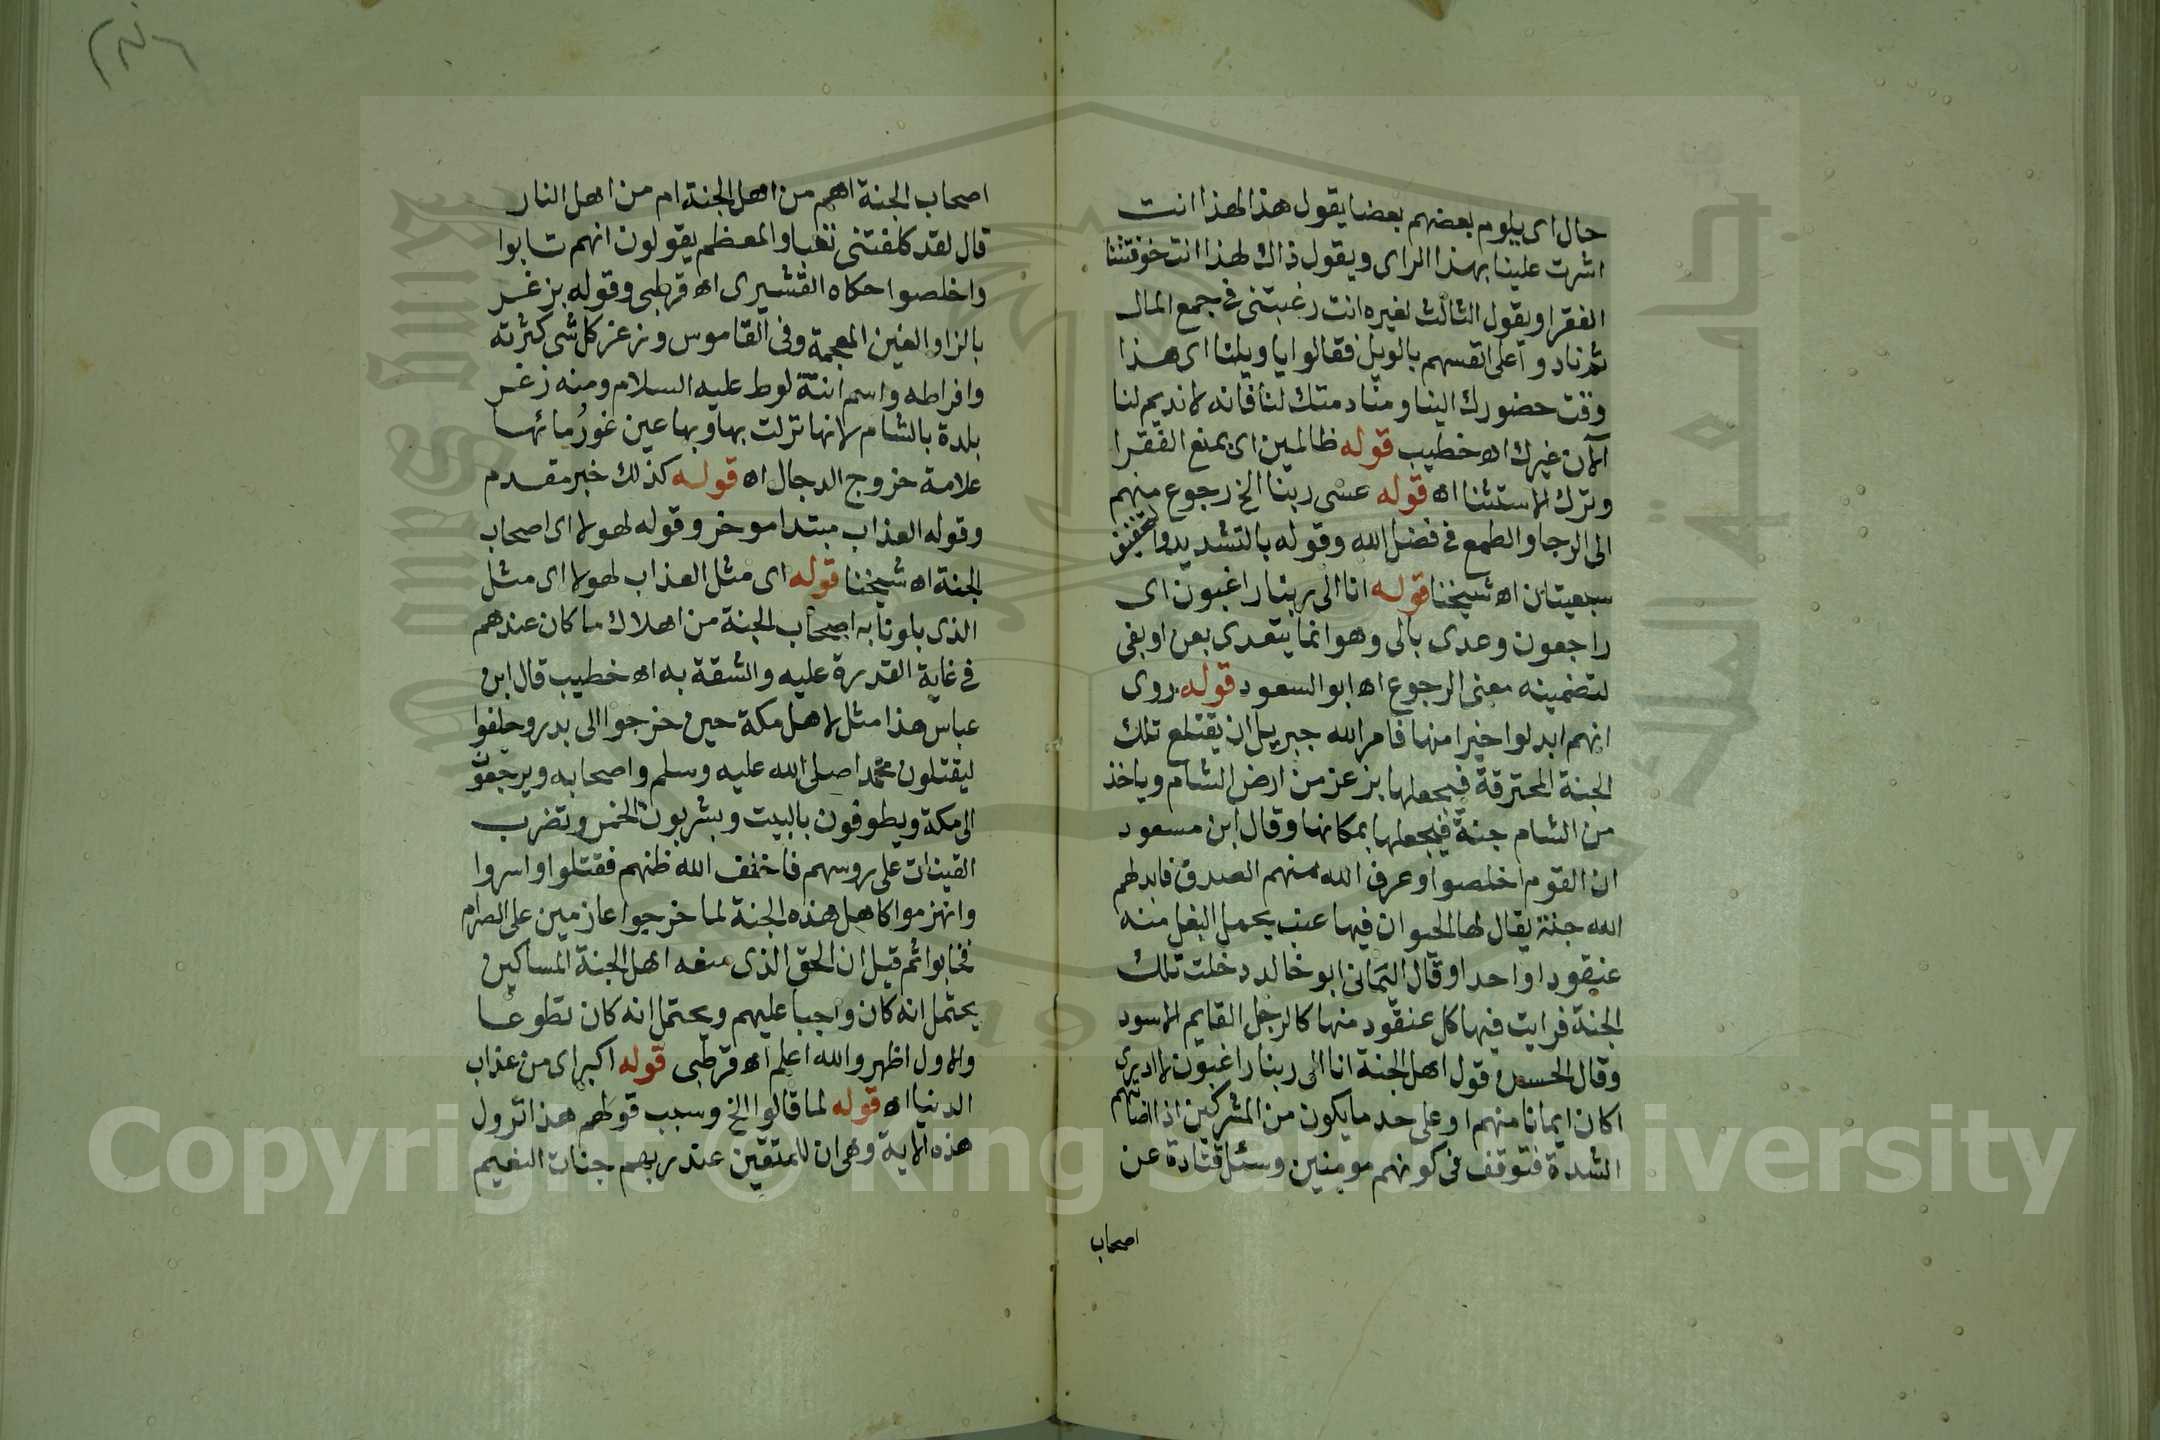 حال اى يلوم بعضهم بعضا يقول هذا لهذا انت
اشرت علينا بهذا الراى ويقول ذاك لهذا انت خوفتنا
الفقرا ويقول الثالث لغيره انت رغبتنى فى جمع المال
ثم نادوا على انفسهم بالويل فقالوا يا ويلنا اى هذا
وقت حضورك الينا ومنادمتك لنا فانه لا نديم لنا
الان غيرك اه خطيب قوله ظالمين اى بمنع الفقرا
وترك الاستثنا اه قوله عسى ربنا الخ رجوع منهم
الى الرجا والطمع فى فضل الله وقوله بالتشديد والتخفيف
سبعيتان اه شيخنا قوله انا الى ربنا راغبون اى
راجعون وعدى بالى وهو انما يتعدى بعن او بفى
لتضمينه معنى الرجوع اه ابو السعود قوله روى
انهم ابدلوا خيرا منها فامر الله جبريل ان يقتلع تلك
الجنة المحترقة فيجعلها بزعز من ارض الشام وياخذ
من الشام جنة فيجعلها بمكانها وقال ابن مسعود
ان القوم اخلصوا وعرف الله منهم الصدق فابدلهم
الله جنة يقال لها الحيوان فيها عنب يحمل البغل منه
عنقودا واحدا وقال اليمانى ابو خالد دخلت تلك
الجنة فرايت فيها كل عنقود منها كالرجل القايم الاسود
وقال الحسن قول اهل الجنة انا الى ربنا راغبون لا ادرى
اكان ايمانا منهم او على حد ما يكون من المشركين اذا اصابتهم
الشدة فتوقف فى كونهم مومنين وسئل قتادة عن
اصحاب
اصحاب الجنة اهم من اهل الجنة ام من اهل النار
قال لقد كلفتنى تعبا والمعظم يقولون انهم تابوا
واخلصوا حكاه القشيرى اه قرطبى وقوله بزغر
بالزاو الغين المعجمة وفى القاموس وزغر كل شى كثرته
وافراطه واسم ابنة لوط عليه السلام ومنه زغر
بلدة بالشام لانها نزلت بها وبها عين غور مائها
علامة خروج الدجال اه قوله كذلك خبر مقدم
وقوله العذاب مبتدا موخر وقوله لهولا اى اصحاب
الجنة اه شيخنا قوله اى مثل العذاب لهولا اى مثل
الذى بلونا به اصحاب الجنة من اهلاك ما كان عندهم
فى غاية القدرة عليه والشقة به اه خطيب قال ابن
عباس هذا مثل لاهل مكة حين خرجوا الى بدر وحلفوا
ليقتلون محمدا صلى الله عليه وسلم واصحابه ويرجعون
الى مكة ويطوفون بالبيت ويشربون الخمر وتضرب
القينات على روسهم فاخلف الله ظنهم فقتلوا واسروا
وانهزموا كاهل هذه الجنة لما خرجوا عازمين على الصرام
فخابوا ثم قيل ان الحق الذى منعه اهل الجنة المساكين
يحتمل انه كان واجبا عليهم ويحتمل انه كان تطوعا
والاول اظهر والله اعلم اه قرطبى قوله اكبر اى من عذاب
الدنيا اه قوله لما قالوا الخ وسبب قولهم هذا نزول
هذه الاية وهى ان للمتقين عند ربهم جنات النعيم
Copyright © King Saud University